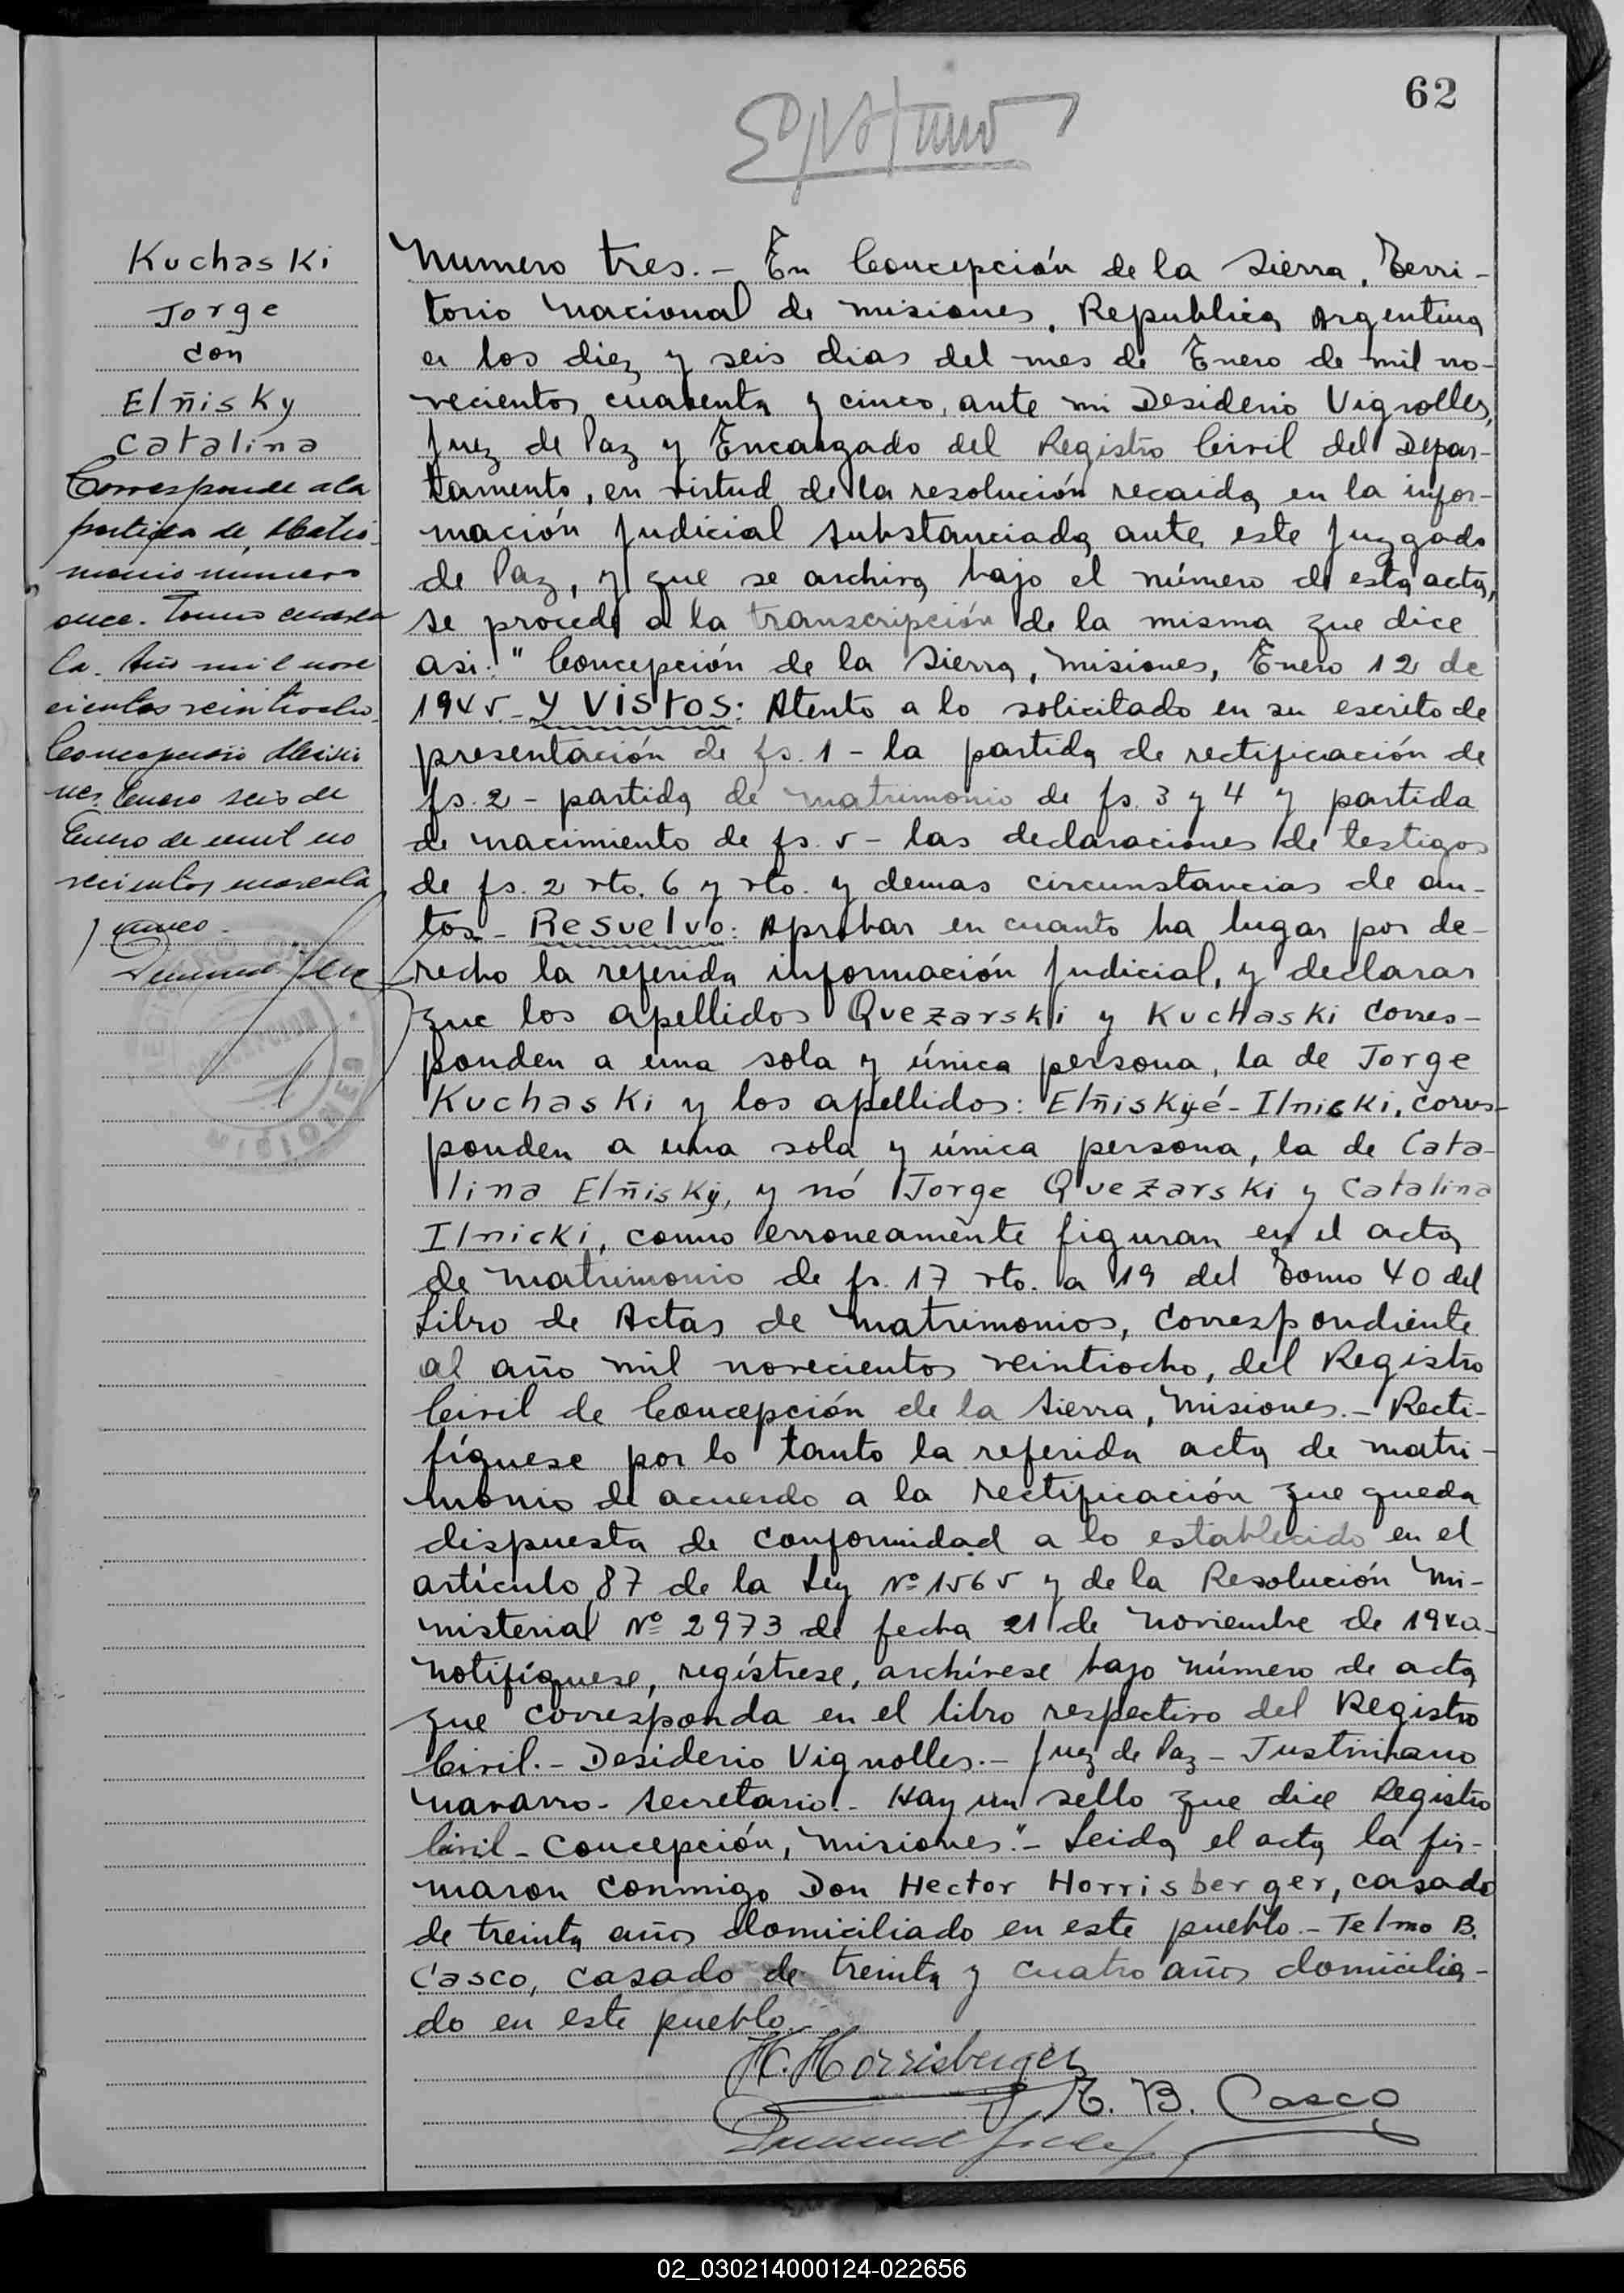 62
Kuchaski
Jorge
con
Elñisky
Catalina
Corresponde a la
partida de Matri-
monio numero
once. Tomo cuaren
ta. Año mil nove
cientos veintiocho.
Concepción Misio
nes, Enero seis de
Enero de mil no
vecientos cuarenta
y cinco.
Numero tres.- En Concepción de la Sierra, Terri-
torio Nacional de Misiones, Republica Argentina
a los diez y seis dias del mes de Enero de mil no-
vecientos cuarenta y cinco, ante mi Desiderio Vignolles,
Juez de Paz y Encargado del Registro Civil del Depar-
tamento, en virtud de la resolución recaida en la infor-
mación Judicial substanciada ante este Juzgado
de Paz, y que se archiva bajo el número de esta acta,
se procede a la transcripción de la misma que dice
asi: "Concepción de la Sierra, Misiones, Enero 12 de
1945.- Y Vistos: Atento a lo solicitado en su escrito de
presentación de fs. 1 - la partida de rectificación de
fs. 2 - partida de matrimonio de fs. 3 y 4 y partida
de nacimiento de fs. 5 - las declaraciones de testigos
de fs. 2 vto. 6 y vto. y demas circunstancias de au-
tos - Resuelvo: Aprobar en cuanto ha lugar por de-
recho la referida información Judicial, y declarar
que los apellidos Quezarski y Kuchaski corres-
ponden a una sola y única persona, la de Jorge
Kuchaski y los apellidos: Elñisky é - Ilnicki, corres-
ponden a una sola y única persona, la de Cata-
lina Elñisky, y nó Jorge Quezarski y Catalina
Ilnicki, como erroneamente figuran en el acta
de matrimonio de fs. 17 vto. a 19 del Tomo 40 del
Libro de Actas de Matrimonios, correspondiente
al año mil novecientos veintiocho, del Registro
Civil de Concepción de la Sierra, Misiones.- Recti-
fíquese por lo tanto la referida acta de matri-
monio de acuerdo a la rectificación que queda
dispuesta de conformidad a lo establecido en el
artículo 87 de la Ley Nº 1565 y de la Resolución Mi-
nisterial Nº 2973 de fecha 21 de Noviembre de 1940-
Notifíquese, regístrese, archívese bajo número de acta
que corresponda en el libro respectivo del Registro
Civil.- Desiderio Vignolles.- Juez de Paz - Justiniano
Navarro - Secretario.- Hay un sello que dice Registro
Civil - Concepción, Misiones".- Leida el acta la fir-
maron conmigo Don Hector Horrisberger, casado
de treinta años domiciliado en este pueblo.- Telmo B.
Casco, casado de treinta y cuatro años domicilia-
do en este pueblo.
H. Horrisberger
T. B. Casco
CONCEPCION
MISIONES
02_030214000124-022656